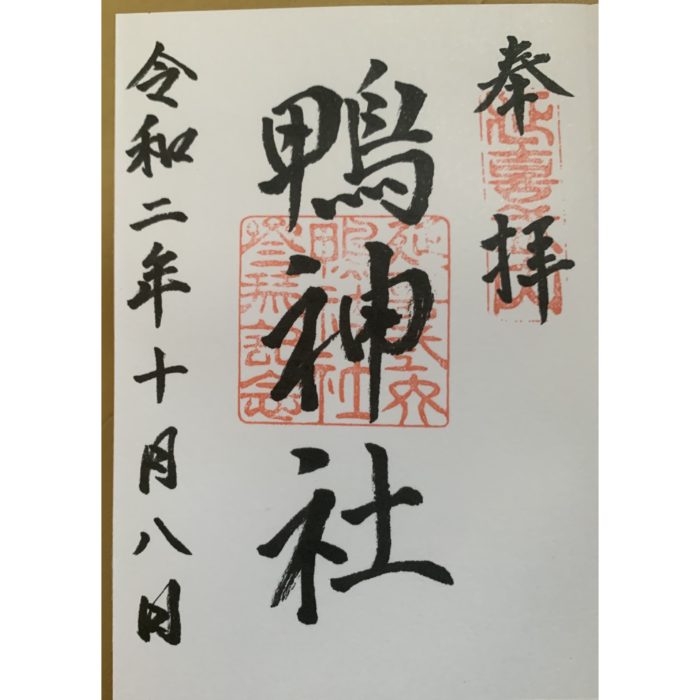 奉拝
鴨神社
令和二年十月八日